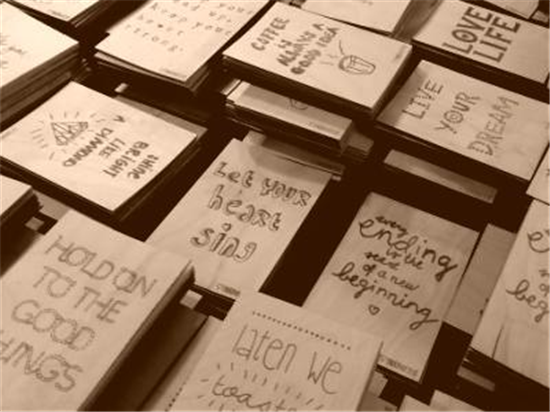 keep your
heart
strong.
COFFEE
is
ALWAYS A
GOOD IDEA
LOVE
LIFE
LIVE
YOUR
DREAM
SHINE
BRIGHT
LIKE
A DIAMOND
Let your
heart
sing
every
ending
is the
seed
of a new
beginning
HOLD ON
TO THE
GOOD
HINGS
laten we